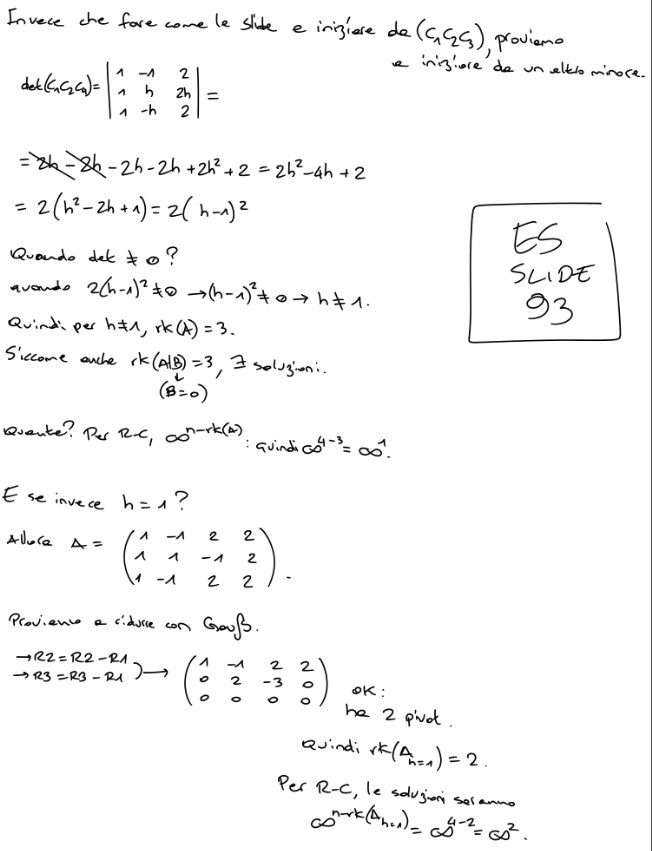 Invece che fare come le slide e iniziare da (C₁C₂C₃), proviamo
a iniziare da un altro minore.
det(C₁C₂C₄) = | 1 -1 2 |
| 1 h 2h | =
| 1 -h 2 |
= 2h - 2h - 2h - 2h + 2h² + 2 = 2h² - 4h + 2
= 2(h² - 2h + 1) = 2(h-1)²
ES
SLIDE
93
Quando det ≠ 0?
quando 2(h-1)² ≠ 0 → (h-1)² ≠ 0 → h ≠ 1.
Quindi per h≠1, rk(A) = 3.
Siccome anche rk(A|B) = 3, ∃ soluzioni.
↓
(B=0)
Quante? Per R-C, ∞^{n-rk(A)} : quindi ∞^{4-3} = ∞¹.
E se invece h = 1?
Allora A = ( 1 -1 2 2
1 1 -1 2
1 -1 2 2 ) .
Proviamo a ridurre con Gauß.
→ R2 = R2 - R1
→ R3 = R3 - R1 ) → ( 1 -1 2 2
0 2 -3 0
0 0 0 0 )
OK:
ha 2 pivot.
Quindi rk(A_{h=1}) = 2.
Per R-C, le soluzioni saranno
∞^{n-rk(A_{h=1})} = ∞^{4-2} = ∞².